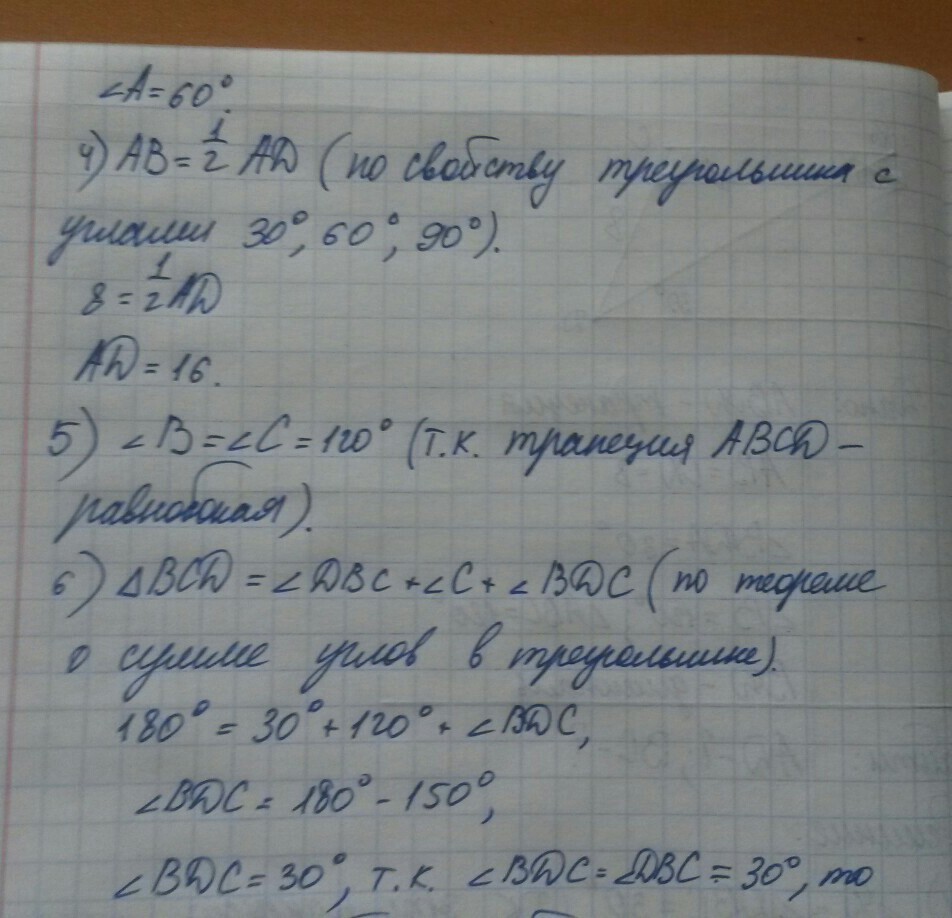 ∠A=60°.
4) AB = 1/2 AD (по свойству треугольника с
углами 30°, 60°, 90°).
8 = 1/2 AD
AD = 16.
5) ∠B = ∠C = 120° (т.к. трапеция ABCD –
равнобокая).
6) ΔBCD = ∠DBC + ∠C + ∠BDC (по теореме
о сумме углов в треугольнике).
180° = 30° + 120° + ∠BDC,
∠BDC = 180° - 150°,
∠BDC = 30°, т.к. ∠BDC = ∠DBC = 30°, то